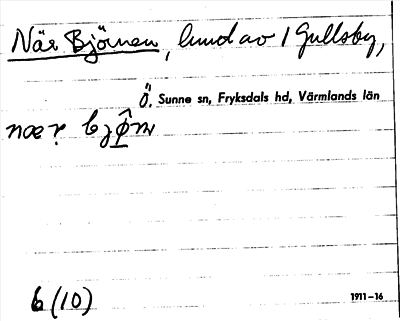 När Björnen, lund av 1 Gullsby,
Ö. Sunne sn, Fryksdals hd, Värmlands län
næ̣r bjø̂ṇ
6 (10)
1911-16